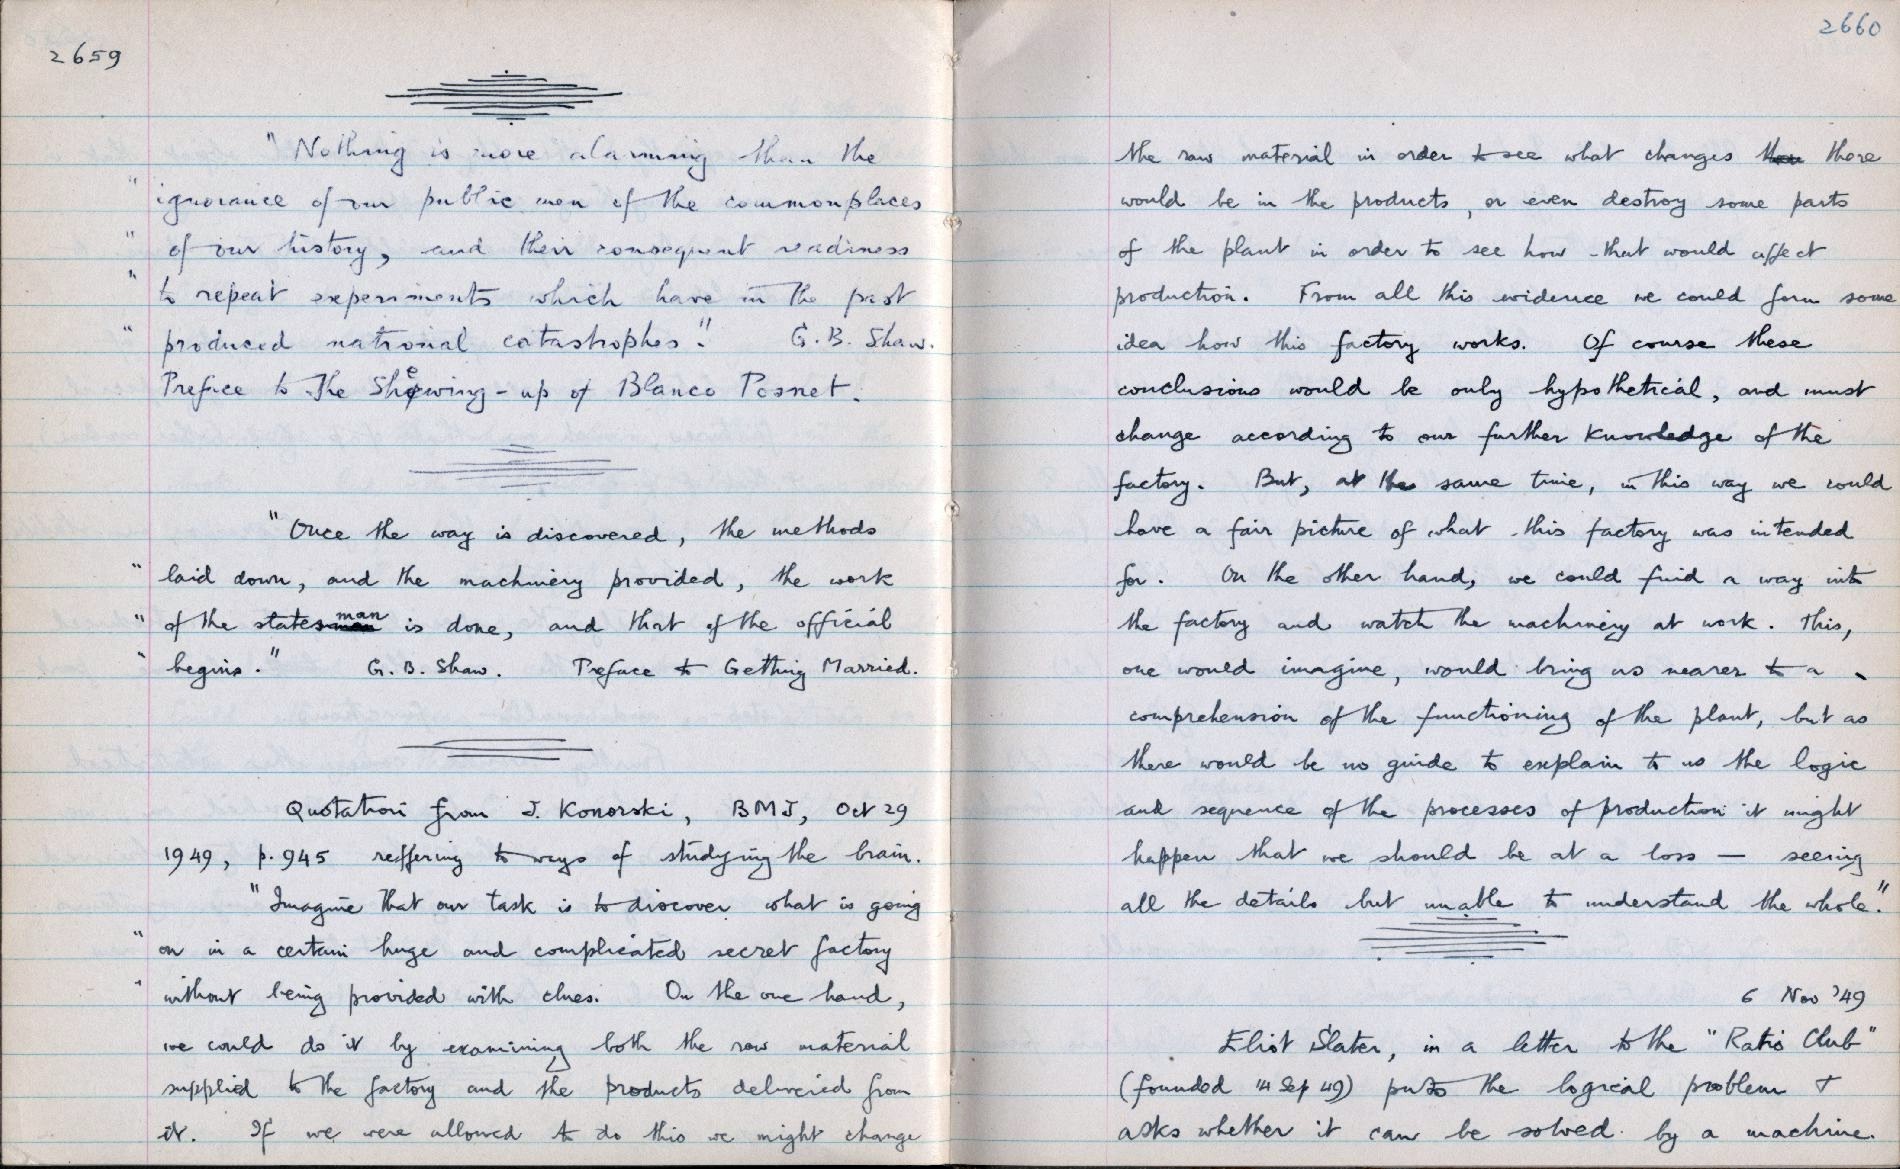 2659
"Nothing is more alarming than the
" ignorance of our public men of the commonplaces
" of our history, and their consequent readiness
" to repeat experiments which have in the past
" produced national catastrophes." G.B. Shaw.
Preface to The Shewing-up of Blanco Posnet.
"Once the way is discovered, the methods
" laid down, and the machinery provided, the work
" of the statesman is done, and that of the official
" begins." G.B. Shaw. Preface to Getting Married.
Quotation from J. Konorski, BMJ, Oct 29
1949, p. 945 reffering to ways of studying the brain.
"Imagine that our task is to discover what is going
" on in a certain huge and complicated secret factory
" without being provided with clues. On the one hand,
we could do it by examining both the raw material
supplied to the factory and the products delivered from
it. If we were allowed to do this we might change
2660
the raw material in order to see what changes there
would be in the products, or even destroy some parts
of the plant in order to see how that would affect
production. From all this evidence we could form some
idea how this factory works. Of course these
conclusions would be only hypothetical, and must
change according to our further knowledge of the
factory. But, at the same time, in this way we could
have a fair picture of what this factory was intended
for. On the other hand, we could find a way into
the factory and watch the machinery at work. This,
one would imagine, would bring us nearer to a
comprehension of the functioning of the plant, but as
there would be no guide to explain to us the logic
and sequence of the processes of production it might
happen that we should be at a loss — seeing
all the details but unable to understand the whole."
6 Nov '49
Eliot Slater, in a letter to the "Ratio Club"
(founded 14 Sep 49) puts the logical problem &
asks whether it can be solved by a machine.